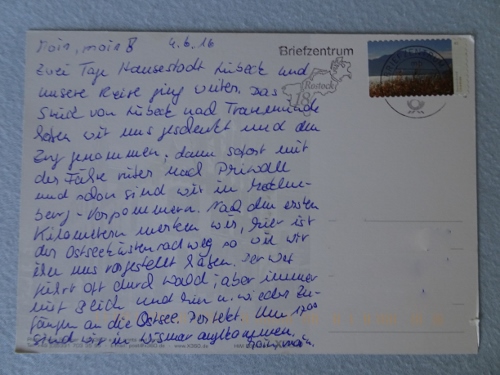 Moin, moin 4.6.16
Zwei Tage Hansestadt Lübeck und
unsere Reise ging weiter. Das
Stück von Lübeck nach Travemünde
haben wir uns geschenkt und den
Zug genommen, dann sofort mit
der Fähre rüber nach Priwall
und schon sind wir in Mecklen-
berg-Vorpommern. Nach den ersten
Kilometern merken wir, hier ist
der Ostseeküstenradweg so wie wir
ihn uns vorgestellt haben. Der Weg
führt oft durch Wald, aber immer
mit Blick und hin u. wieder Zu-
gängen an die Ostsee. Perfekt. Um 17.00
sind wir in Wismar angekommen.
Moin, moin.
Briefzentrum
Rostock
18